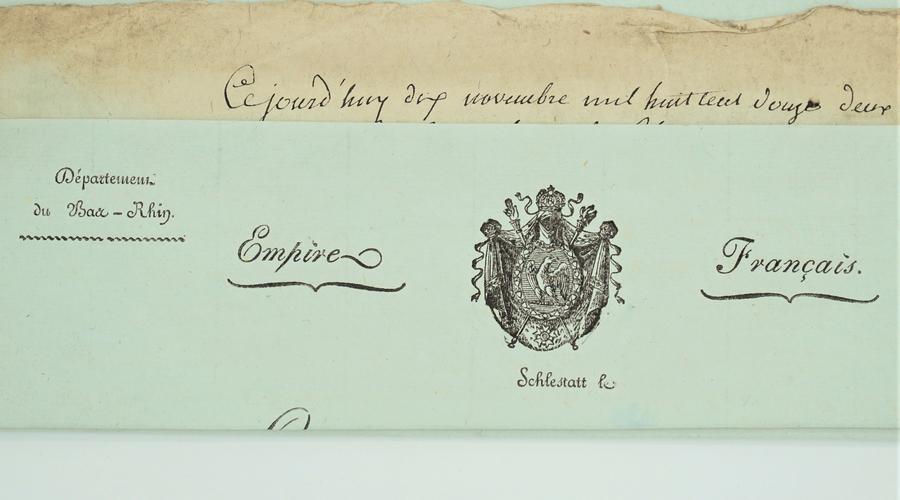 Cejourd'huy dix novembre mil huit cent douze deux
Département
du Bas-Rhin.
Empire Français.
Schlestatt le